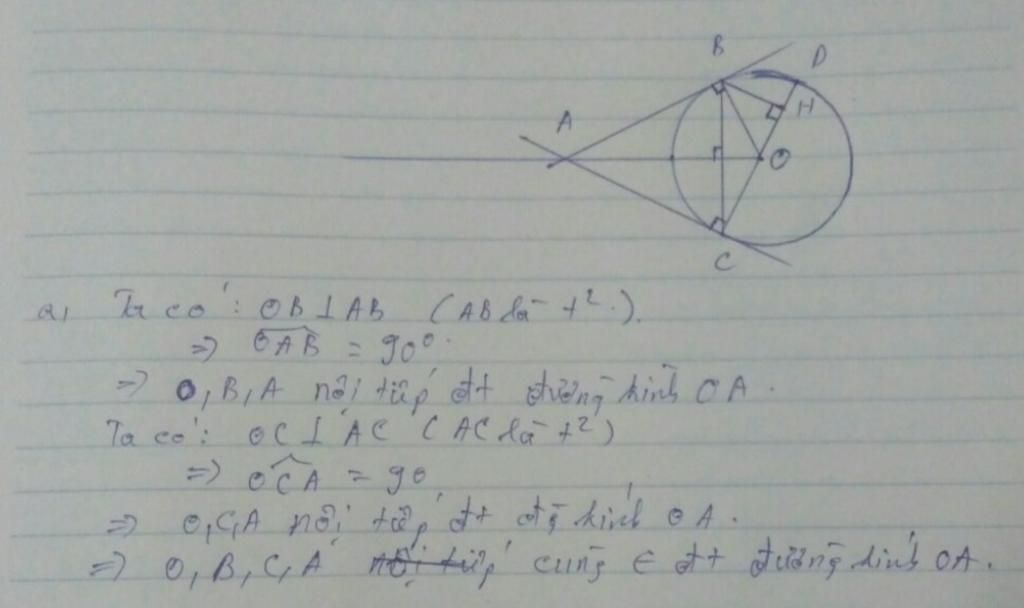 B D
A H
O
C
a, Ta có: OB ⊥ AB (AB là t².).
=> OAB = 90°.
=> O, B, A nội tiếp đt đường kính OA.
Ta có: OC ⊥ AC (AC là t²)
=> OCA = 90
=> O, C, A nội tiếp đt đg kính OA.
=> O, B, C, A nội tiếp cùng ∈ đt đường kính OA.